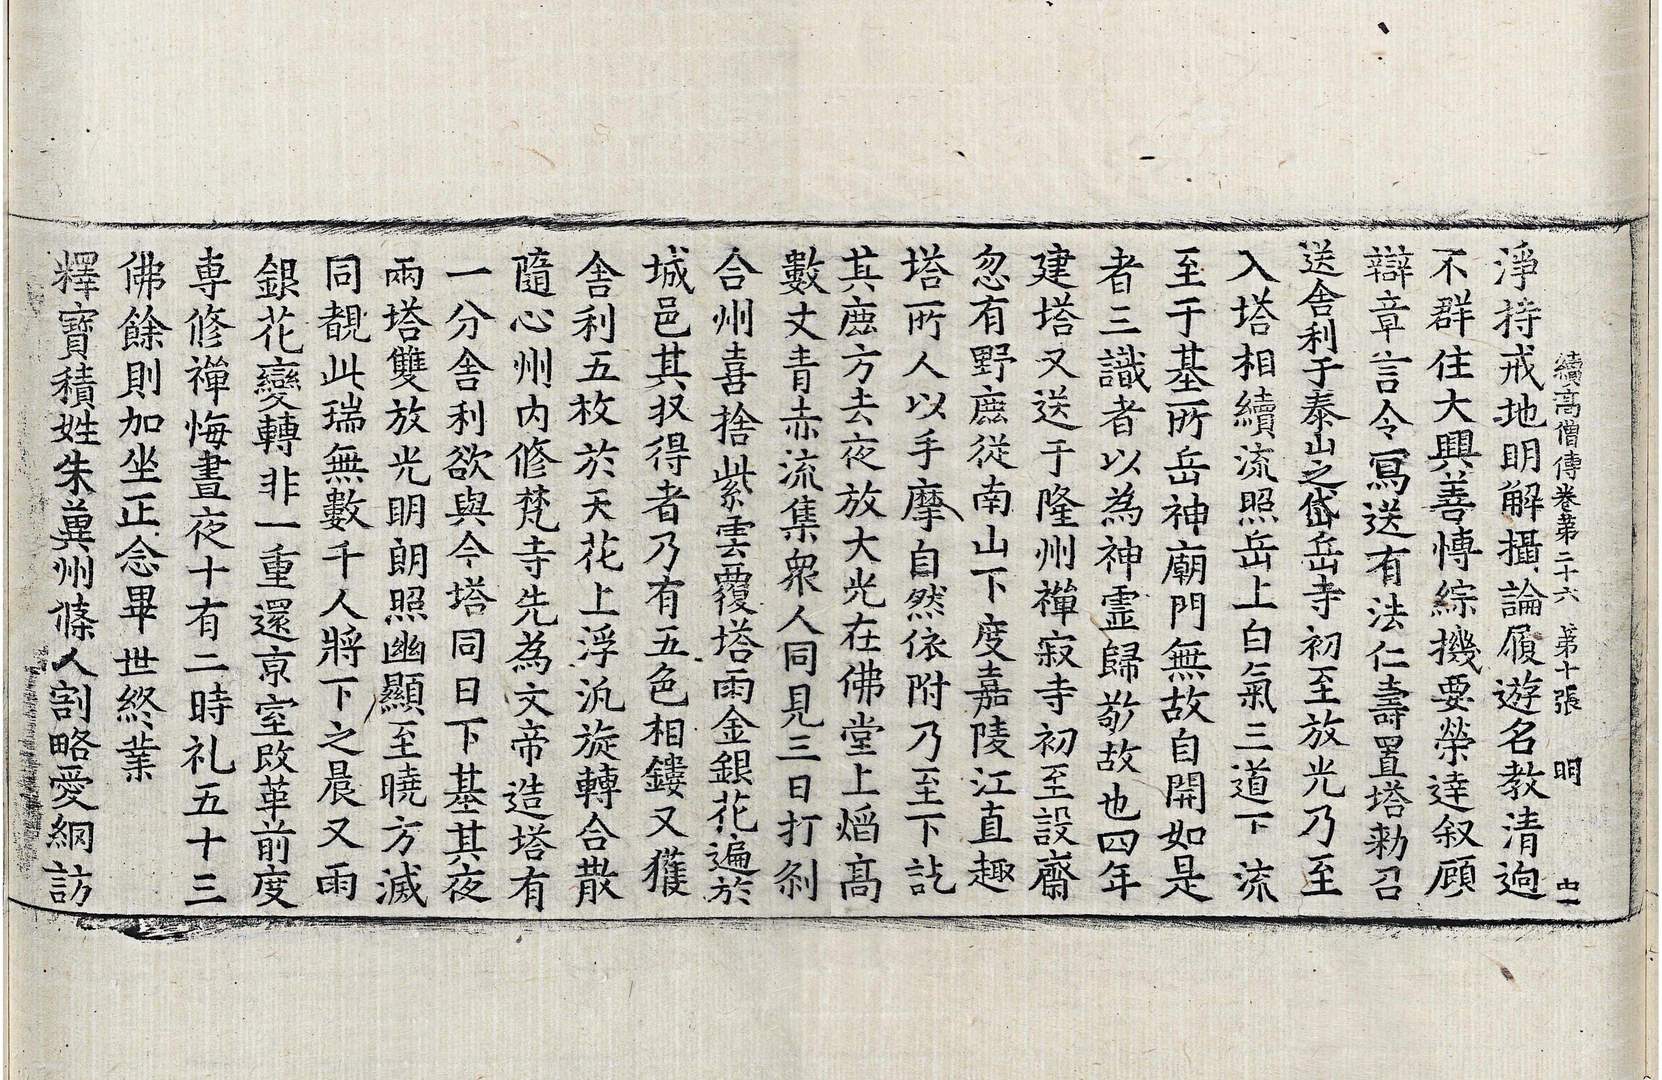 續高僧傳卷第二十六　第十張　明
淨持戒地明解攝論履遊名教清逈
不群住大興善愽綜機要榮達叙顧
辯章言令寫送有法仁壽置塔勑召
送舍利于泰山之岱岳寺初至放光乃至
入塔相續流照岳上白氣三道下流
至于基所岳神廟門無故自開如是
者三識者以為神靈歸敬故也四年
建塔又送于隆州禪寂寺初至設齋
忽有野鹿從南山下度嘉陵江直趣
塔所人以手摩自然依附乃至下訖
其鹿方去夜放大光在佛堂上焰高
數丈青赤流集衆人同見三日打刹
合州喜捨紫雲覆塔雨金銀花遍於
城邑其収得者乃有五色相鏤又獲
舍利五枚於天花上浮汎旋轉合散
隨心州内修梵寺先為文帝造塔有
一分舍利欲與今塔同日下基其夜
兩塔雙放光明朗照幽顯至曉方滅
同覩此瑞無數千人將下之晨又雨
銀花變轉非一重還京室改革前度
專修禪悔晝夜十有二時礼五十三
佛餘則加坐正念畢世終業
釋寶積姓朱冀州條人割略愛網訪